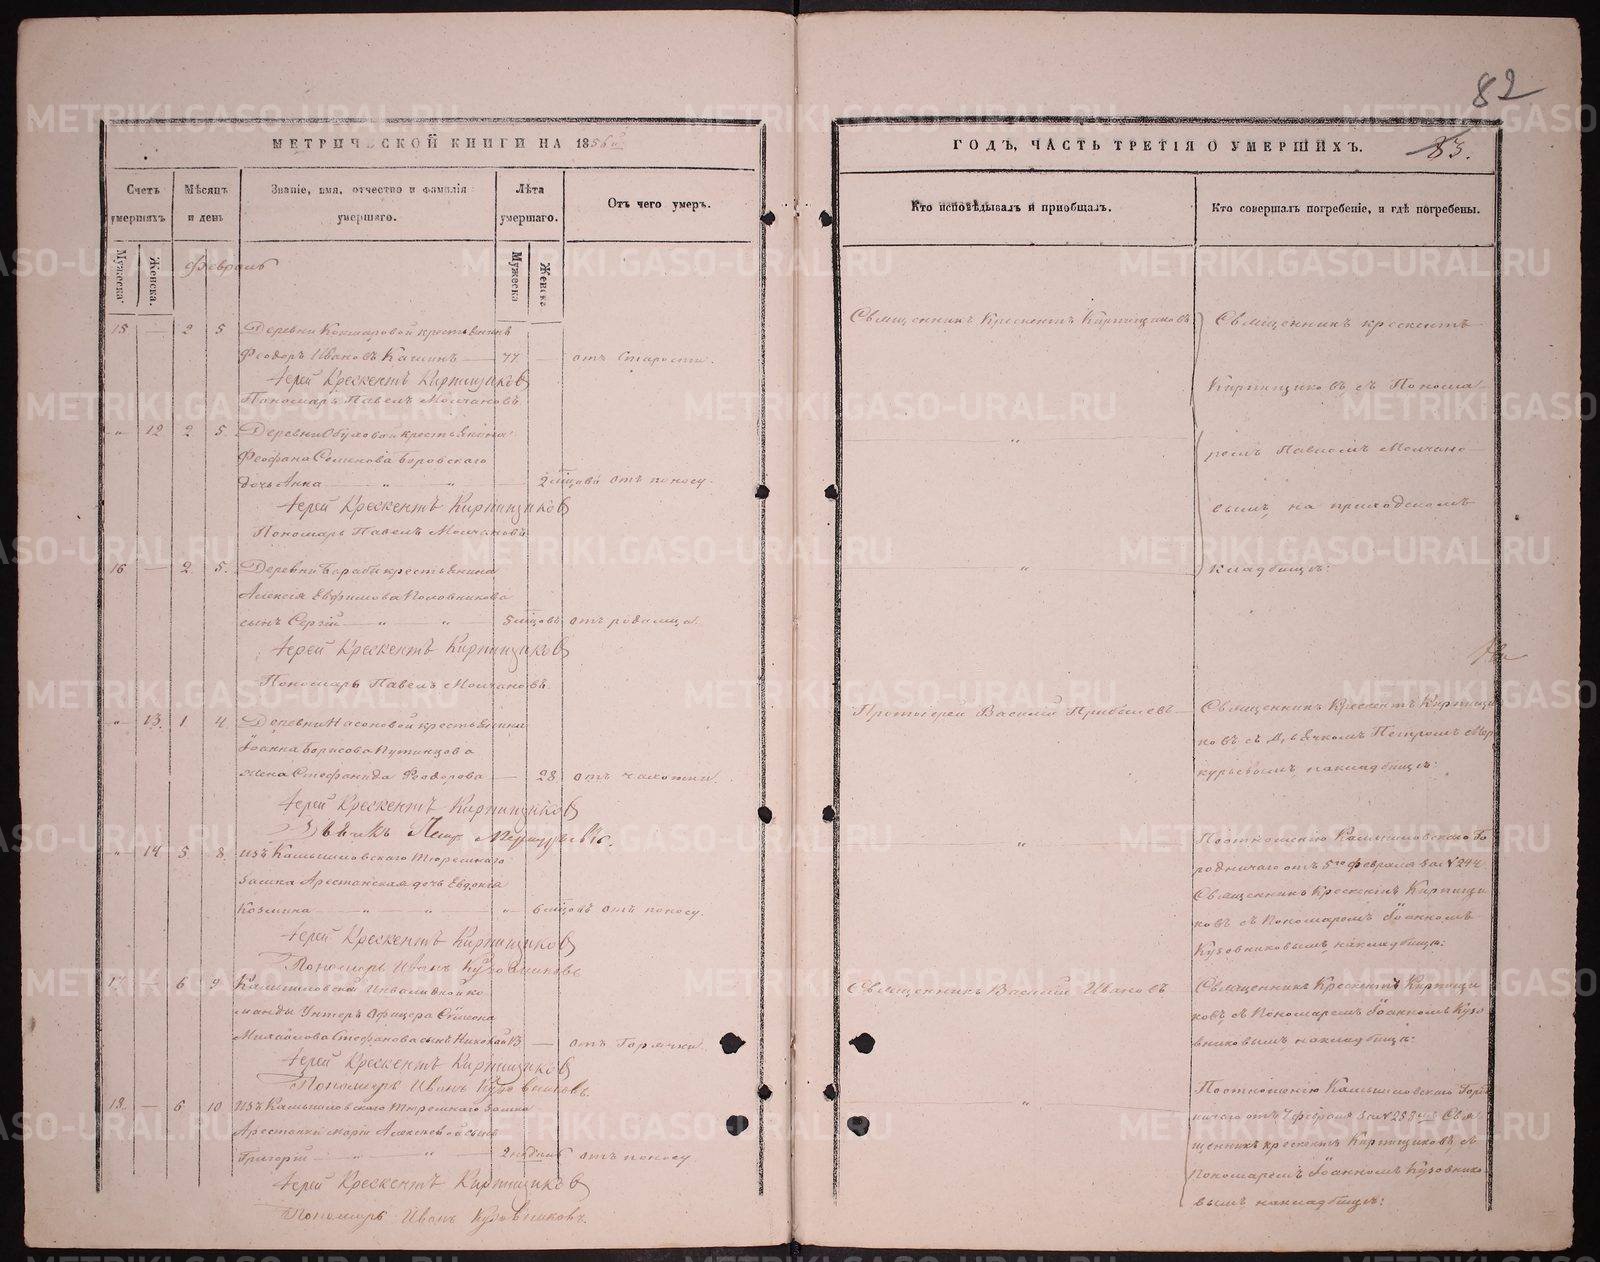 82
МЕТРИЧЕСКОЙ КНИГИ НА 1856й
ГОДЪ, ЧАСТЬ ТРЕТІЯ О УМЕРШИХЪ.
83.
Счетъ умершихъ
Мѣсяцъ и день
Званіе, имя, отчество и фамилія умершаго.
Лѣта умершаго.
Отъ чего умеръ.
Кто исповѣдывалъ и пріобщалъ.
Кто совершалъ погребеніе, и гдѣ погребены.
Мужеска.
Женска.
Мужеска
Женска.
Февраль
15 — 2 5 Деревни Кокшаровой крестьянинъ
Феодоръ Ивановъ Кашинъ — 77 — отъ Старости.
Іерей Крескентъ Кирпищиковъ
Пономарь Павелъ Молчановъ
" 12 2 5. Деревни Обуховой крестьянина
Феофана Семенова Боровскаго
дочь Анна " " 2 мѣсцовъ отъ поносу.
Іерей Крескентъ Кирпищиковъ
Пономарь Павелъ Молчановъ
16 — 2. 5. Деревни Барабы крестьянина
Алексія Евфимова Половникова
сынъ Сергій " " 5 мѣсцовъ отъ родимца.
Іерей Крескентъ Кирпищиковъ
Пономарь Павелъ Молчановъ.
" 13. 1 4. Деревни Насоновой крестьянина
Іоанна Борисова Путинцова
жена Стефанида Феодорова — 28 отъ чахотки.
Іерей Крескентъ Кирпищиковъ
Дьячекъ Петръ Меркурьевъ.
" 14. 5 8. изъ Камышловскаго Тюремнаго
замка Арестанская дочь Евдокія
Козмина " " " 6 мѣсцовъ отъ поносу.
Іерей Крескентъ Кирпищиковъ
Пономарь Иванъ Кузовниковъ
17 — 6 9. Камышловской Инвалидной ко
манды Унтеръ Офицера Симеона
Михайлова Стефанова сынъ Николай 13 — отъ Горячки.
Іерей Крескентъ Кирпищиковъ
Пономарь Иванъ Кузовниковъ.
18. — 6 10 изъ Камышловскаго Тюремнаго замка
Арестанки Маріи Алексеевой сынъ
Григорій " " 2 недѣль отъ поносу.
Іерей Крескентъ Кирпищиковъ
Пономарь Иванъ Кузовниковъ.
Священникъ Крескентъ Кирпищиковъ
"
"
Протоіерей Василій Прибылевъ
"
Священникъ Василій Ивановъ
"
Священникъ Крескентъ
Кирпищиковъ съ Понома
ремъ Павломъ Молчано
вымъ, на приходскомъ
кладбищѣ:
Священникъ Крескентъ Кирпищи
ковъ съ Дьячкомъ Петромъ Мер
курьевымъ, на кладбищѣ:
По отношенію Камышловскаго Го
родничаго отъ 5го февраля за №244
Священникъ Крескентъ Кирпищи
ковъ съ Пономаремъ Іоанномъ
Кузовниковымъ на кладбищѣ:
Священникъ Крескентъ Кирпищи
ковъ, съ Пономаремъ Іоанномъ Кузо
вниковымъ на кладбищѣ:
По отношенію Камышловскаго Город
ничаго отъ 7 февраля за №253 Свя
щенникъ Крескентъ Кирпищиковъ, съ
Пономаремъ Іоанномъ Кузовнико
вымъ на кладбищѣ:
METRIKI.GASO-URAL.RU